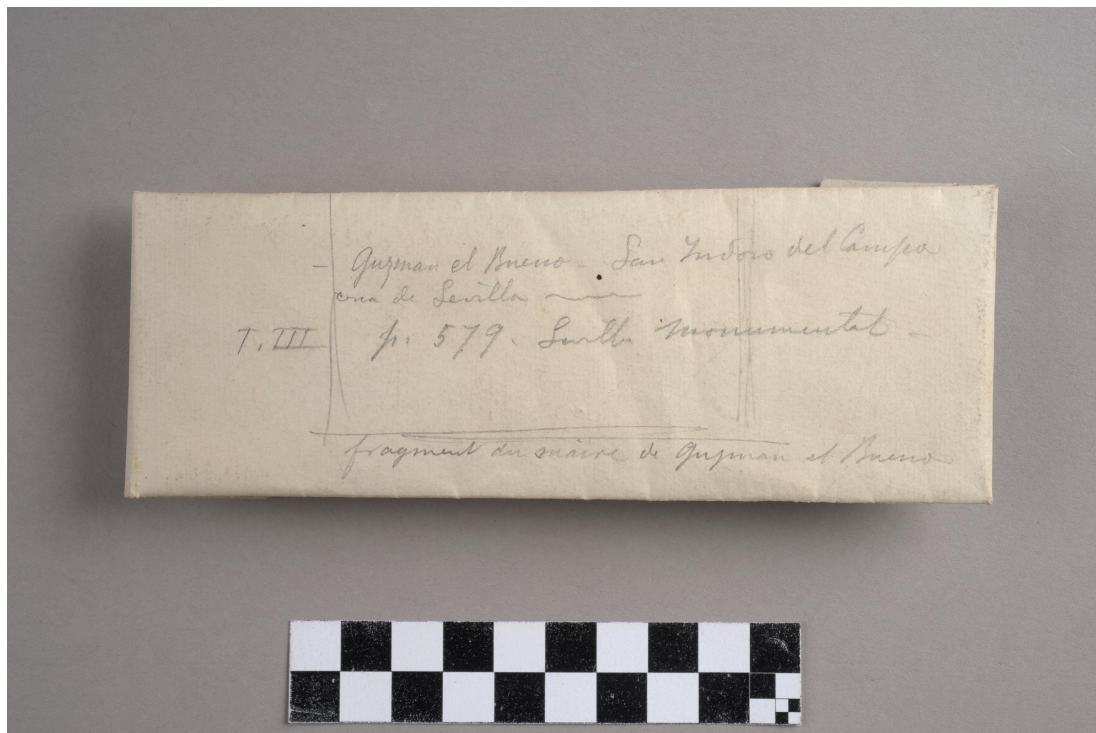 – Guzman el Bueno – San Isidoro del Campo
cerca de Sevilla
T. III p. 579. Sevilla Monumental –
fragment du suaire de Guzman el Bueno